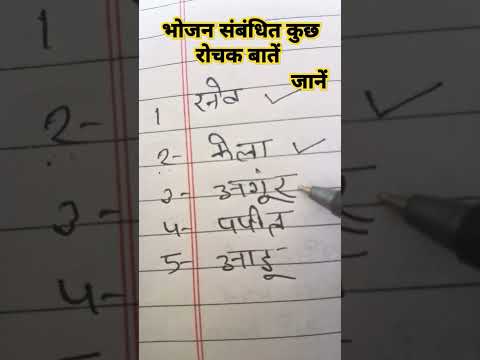 भोजन संबंधित कुछ
रोचक बातें
जानें
1 सेव ✓
2- केला ✓
3- अगूंर
4- पपीता
5- आडू